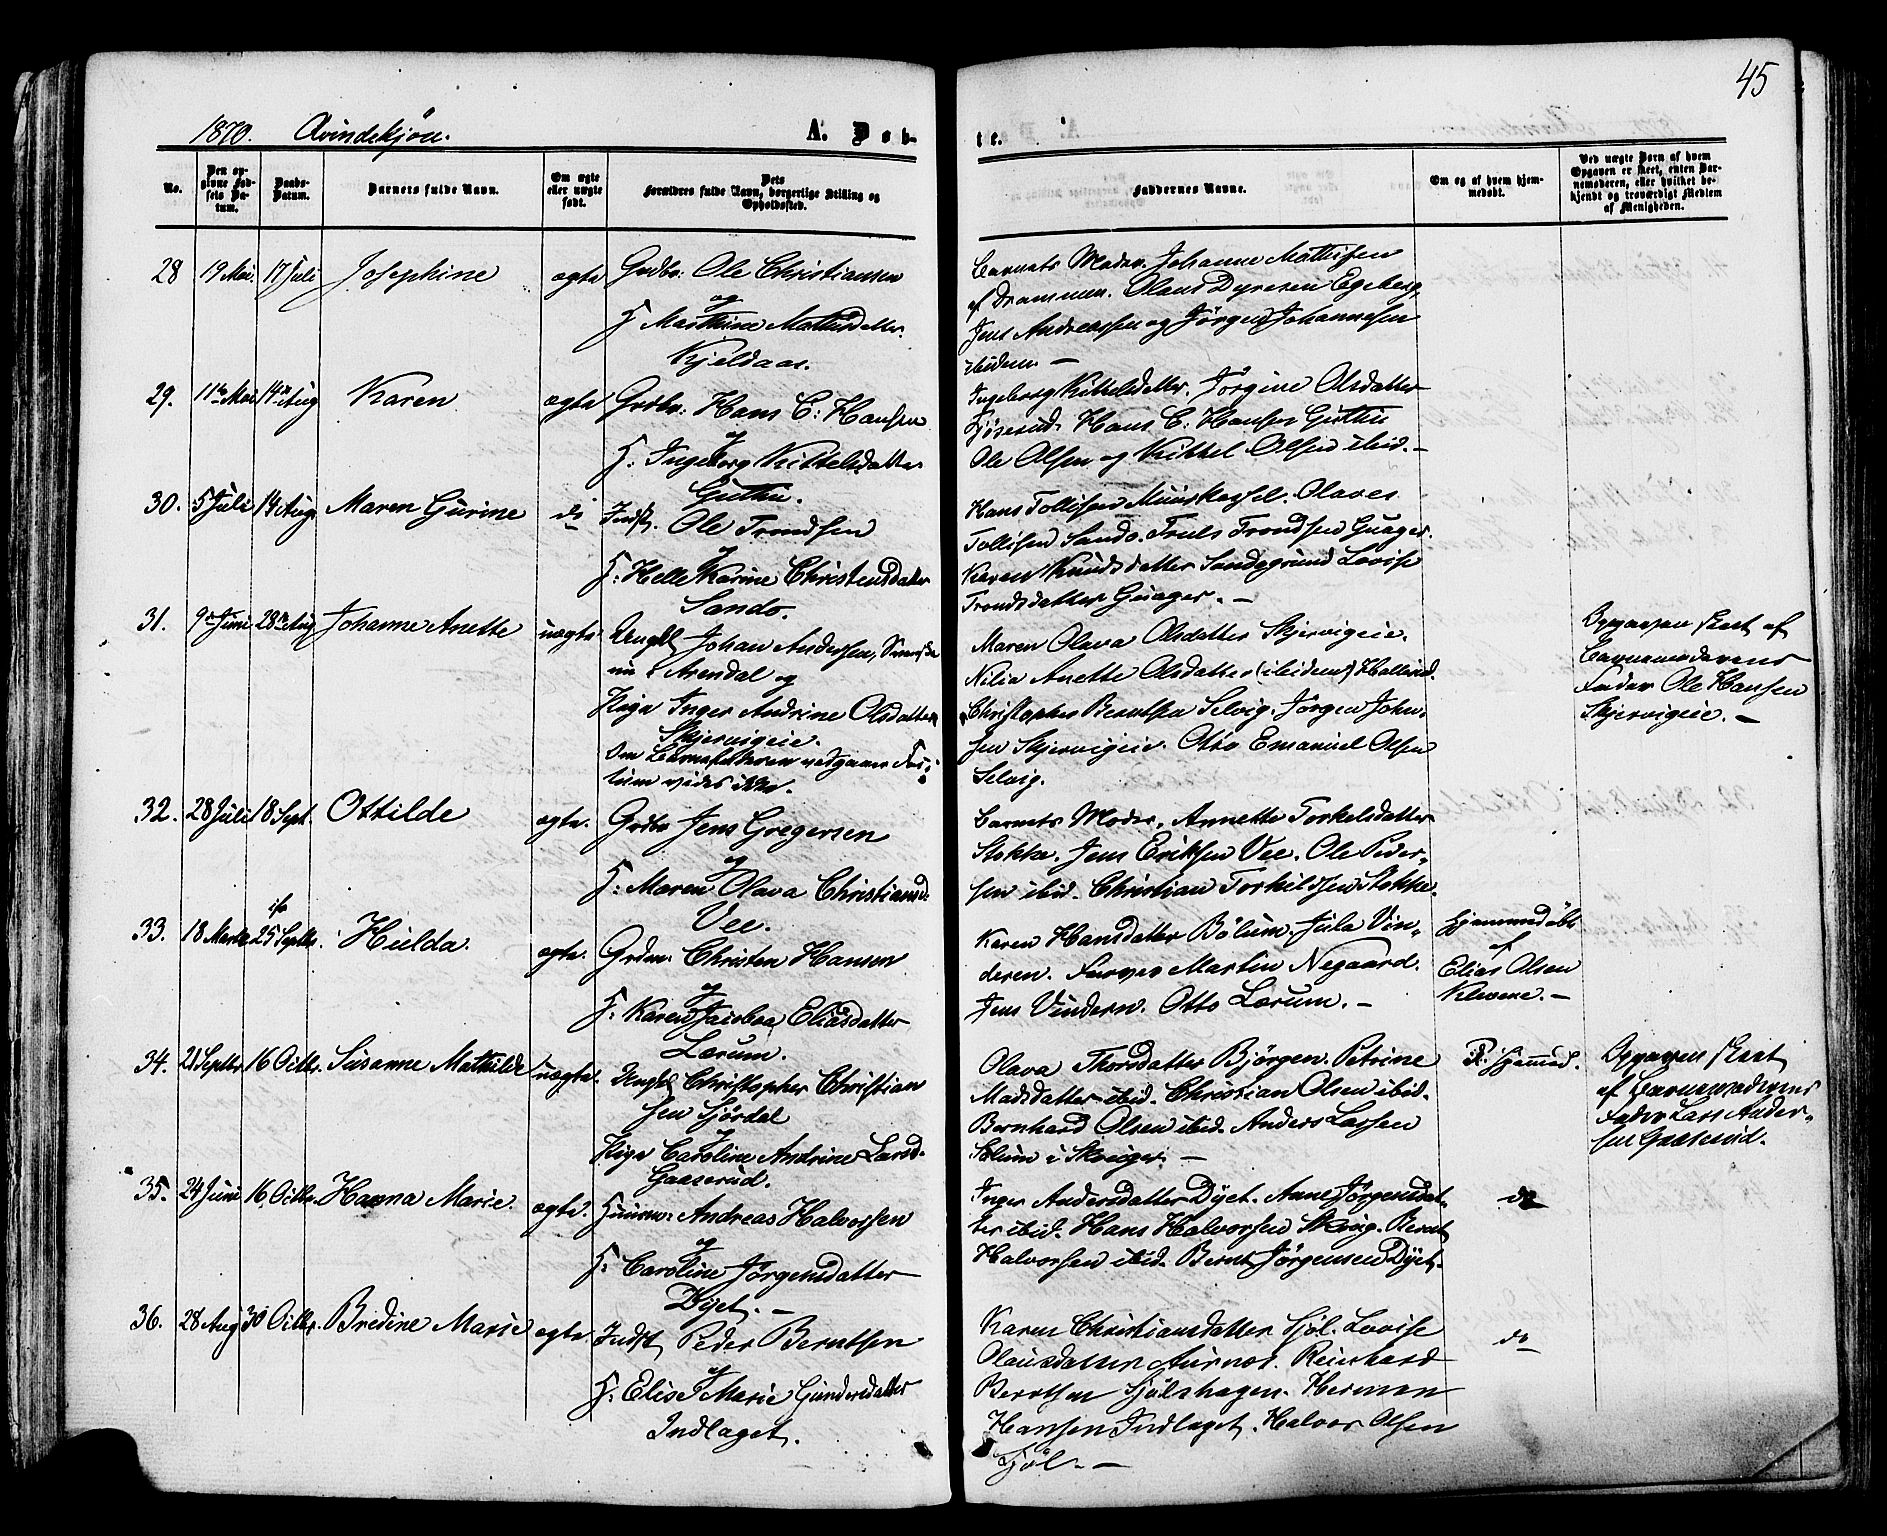 45
1870. Qvindekjøn.
A. Døb-
te.
No.
Den opgivne Fødsels Datum.
Daabs-Datum.
Barnets fulde Navn.
Om ægte eller uægte født.
Dets Forældres fulde Navn, borgerlige Stilling og Opholdssted.
Faddernes Navne.
Om og af hvem hjemmedøbt.
Ved uægte Børn af hvem Opgaven er skeet, enten Barnemoderen, eller hvilket bekjendt og troværdigt Medlem af Menigheden.
28 19 Mai. 17 Juli Josephine ægte Grdbr. Ole Christiansen
og
H. Marthine Mathisdatter
Kjeldaas.
Barnets Moder. Johanne Mathisen
af Drammen. Olaus Dyresen Egeberg,
Jens Andreassen og Jørgen Johannesen
ibidem. —
29. 11te Mai 14de Aug Karen ægte Grdbr: Hans C: Hansen
og
H. Ingeborg Kittelsdatter
Guthu.
Ingeborg Kittelsdatter. Jørgine Olsdatter
Hans C. Hansen Guthu
Ole Olsen og Kittel Olsen ibid. —
30. 5 Juli 14 Aug. Maren Gurine do Indst. Ole Trondsen
og
H. Helle Karine Christensdatter
Sando.
Hans Tollifsen Olaves
Tollifsen Sando. Truls Trondsen Guager.
Karen Knudsdatter Sandegrund Lovise
Trondsdatter Guager. —
31. 9de Juni 28de Aug Johanne Anette uægte Ungkl Johan Andersen,
nu i Arendal og
Pige Inger Andrine Olsdatter
Skjervigeie.
Om Barnefaderen vedgaaer
vides ikke.
Maren Olava Olsdatter Skjervigeie.
Nilia Anette Olsdatter (ibidem)
Christopher Berntsen Selvig. Jørgen John-
sen Skjervigeie. Otto Emanuel Olsen
Selvig.
Opgaven skeet af
Barnemoderens
Fader Ole Hansen
Skjervigeie. —
32. 28 Juli 18 Sept. Ottilde ægte. Grdbr Jens Gregersen
og
H. Maren Olava Christiansd.
Vee.
Barnets Moder. Annette Torkelsdatter
Stokke. Jens Eriksen Vee. Ole Peder-
sen ibid. Christian Torkildsen Stokke.
33. 18 Marts 25 Septbr. Hulda. ægte. Grdm. Christen Hansen
og
H. Karen Jacobea Eliasdatter
Lærum.
Karen Hansdatter Bölum. Jula Vin-
deren. Martin Negaard.
Jens Vinderen. Otto Lærum. —
Hjemmedøbt
af
Elias Olsen
Klevene. —
34. 21 Septbr 16 Octbr. Susanne Mathilde uægte. Ungkl Christopher Christian
sen Fjørdal
og
Pige Caroline Andrine Larsd.
Gaaserud.
Olava Thorsdatter Bjørgen. Petrine
Madsdatter ibid. Christian Olsen ibid.
Bernhard Olsen ibid. Anders Larsen
Solum i Skouger. —
Opgaven skeet
af Barnemoderens
Fader Lars Ander-
sen Gaaserud.
35. 24 Juni 16 Octbr. Hanna Marie. ægte. Huusm: Andreas Halvorsen
og
H. Caroline Jørgensdatter
Dyet. —
Inger Andersdatter Dyet. Anne Jørgensdat-
ter ibid. Hans Halvorsen Skoug. Bernt
Halvorsen ibid. Bernt Jørgensen Dyet.
do
36. 28 Aug 30 Octbr. Bredine Marie ægte. Indst Peder Berntsen
og
H. Elise Marie Gundersdatter
Indlaget.
Karen Christiansdatter Fjøl. Lovise
Olausdatter Reinhard
Berntsen Fjølshagen. Herman
Hansen Indlaget. Halvor Olsen
Fjøl. —
do